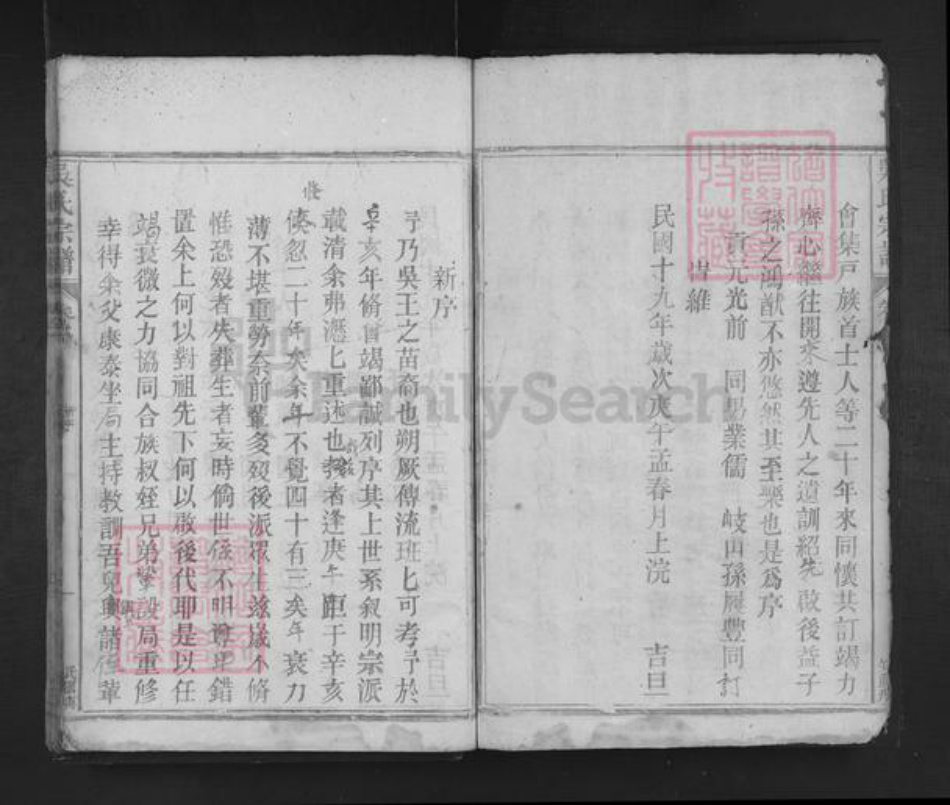 會集戶族首士人等二十年來同懷共訂竭力
齊心繼往開來遵先人之遺訓紹先啟後益子
孫之鴻猷不亦悠然其至樂也是為序
貢元光前 同易業儒 岐山孫履豐同訂
維
民國十九年歲次庚午孟春月上浣 吉旦
新序
予乃吳王之苗裔也朔厥傳流班匕可考予於
辛亥年脩 竭鄙誠列序其上世系叙明宗派
載清余弗憑匕重述也 者逢庚午距于辛亥
倏忽二十年矣余年不覺四十有三矣年衰力
薄不堪重勞奈前輩多歿後派眾生茲歲不脩
惟恐歿者失葬生者妄時倘世系不明尊卑錯
置余上何以對祖先下何以啟後代耶是以任
竭衰微之力協同合族叔姪兄弟 設局重修
幸得余父康泰坐局主持教訓吾兒與諸侄輩
吳氏宗譜
FamilySearch